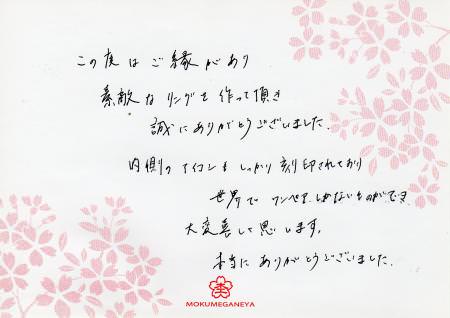 この度はご縁があり
素敵なリングを作って頂き
誠にありがとうございました.
内側のアイコンもしっかり刻印されており
世界でワンペアしかないものができ
大変喜しく思います。
本当にありがとうございました.
MOKUMEGANEYA